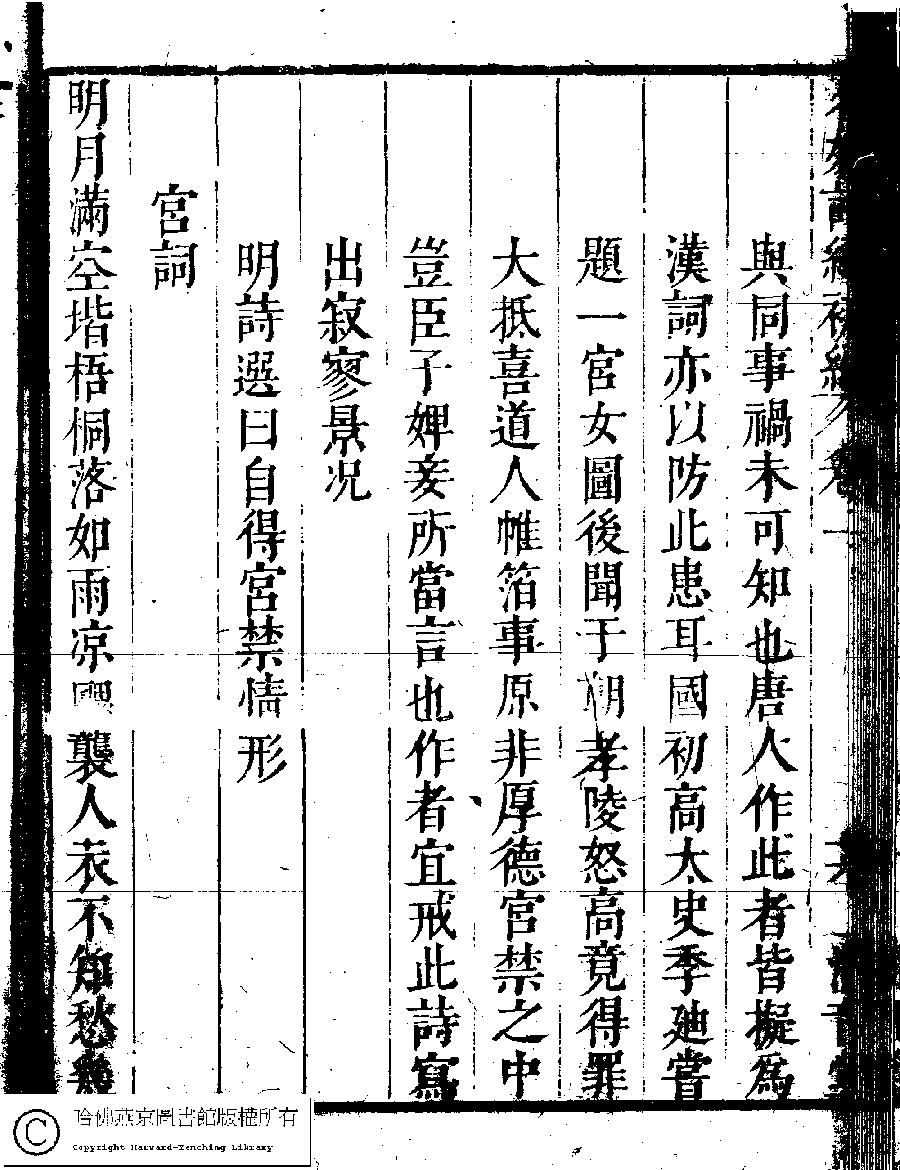 與同事禍未可知也唐人作此者皆擬為
漢詞亦以防此患耳國初高太史季迪嘗
題一宮女圖後聞于朝孝陵怒高竟得罪
大抵喜道人帷箔事原非厚德宮禁之中
豈臣子婢妾所當言也作者宜戒此詩寫
出寂寥景况
明詩選曰自得宮禁情形
宮詞
明月滿空堦梧桐落如雨凉襲人衣不知愁
哈佛燕京圖書館版權所有
Copyright Harvard-Yenching Library